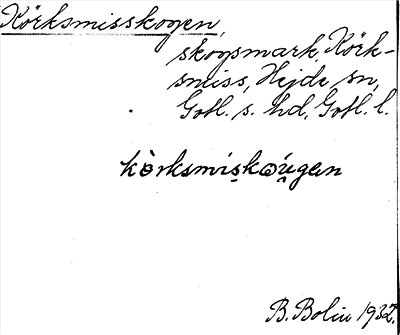 Körksmisskogen,
skogsmark, Körk-
smiss, Hejde sn,
Gotl. s. hd, Gotl. l.
kòrksmiskoǘgen
B. Bolin 1932.